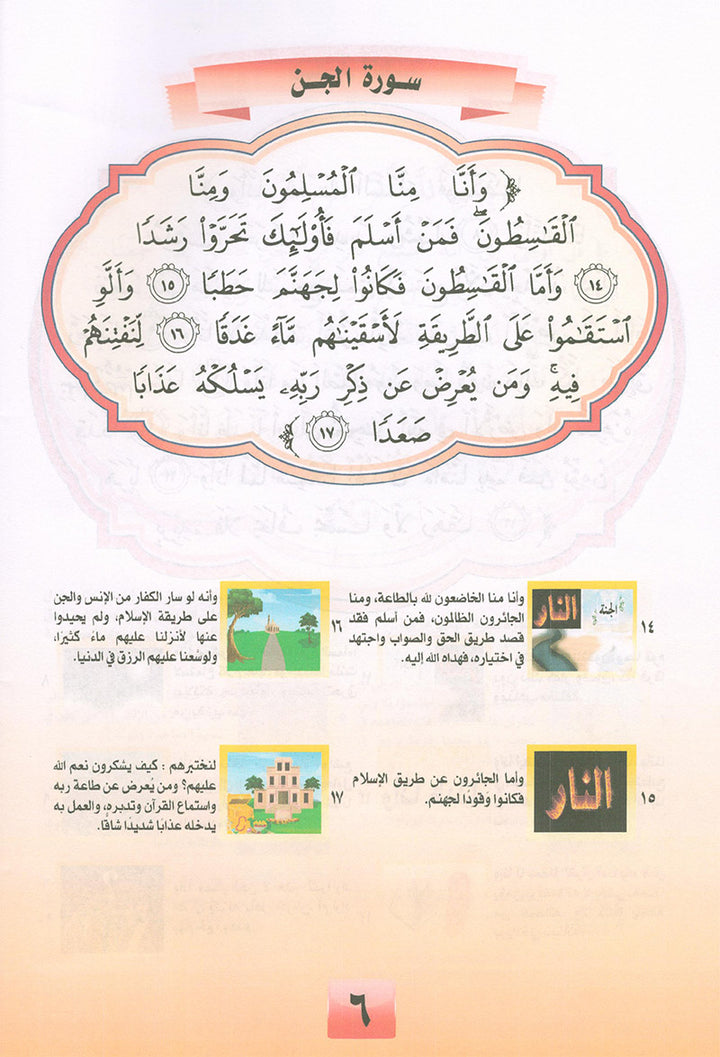 سورة الجن
﴿ وَأَنَّا مِنَّا ٱلْمُسْلِمُونَ وَمِنَّا
ٱلْقَـٰسِطُونَ ۖ فَمَنْ أَسْلَمَ فَأُو۟لَـٰٓئِكَ تَحَرَّوْا۟ رَشَدًا
١٤ وَأَمَّا ٱلْقَـٰسِطُونَ فَكَانُوا۟ لِجَهَنَّمَ حَطَبًا ١٥ وَأَلَّوِ
ٱسْتَقَـٰمُوا۟ عَلَى ٱلطَّرِيقَةِ لَأَسْقَيْنَـٰهُم مَّآءً غَدَقًا ١٦ لِّنَفْتِنَهُمْ
فِيهِ ۚ وَمَن يُعْرِضْ عَن ذِكْرِ رَبِّهِۦ يَسْلُكْهُ عَذَابًا
صَعَدًا ١٧ ﴾
١٤
الجنة
النار
وأنا منا الخاضعون لله بالطاعة، ومنا
الجائرون الظالمون، فمن أسلم فقد
قصد طريق الحق والصواب واجتهد
في اختياره، فهداه الله إليه.
١٦
وأنه لو سار الكفار من الإنس والجن
على طريقة الإسلام، ولم يحيدوا
عنها لأنزلنا عليهم ماءً كثيرًا،
ولوسَّعنا عليهم الرزق في الدنيا.
١٥
النار
وأما الجائرون عن طريق الإسلام
فكانوا وَقودًا لجهنم.
١٧
لنختبرهم : كيف يشكرون نعم الله
عليهم؟ ومن يُعرض عن طاعة ربه
واستماع القرآن وتدبره، والعمل به
يدخله عذابًا شديدًا شاقًّا.
٦